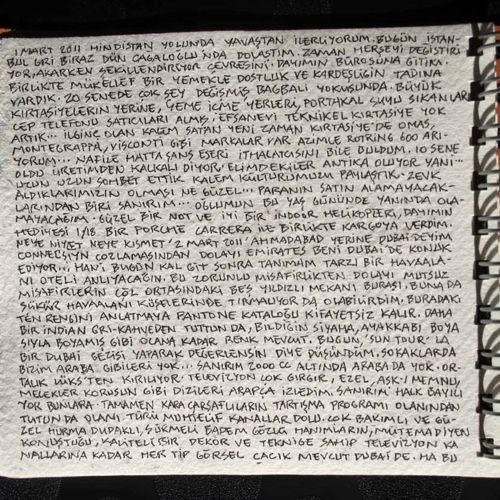 1 MART 2011 HİNDİSTAN YOLUNDA YAVAŞTAN İLERLİYORUM. BUGÜN İSTAN-
BUL GRİ BİRAZ DÜN CAGALOĞLU'NDA DOLAŞTIM. ZAMAN HERŞEYİ DEĞİŞTİRİ
YOR, AKARKEN ŞEKİLLENDİRİYOR ÇEVRESİNİ. DAYIMIN BÜROSUNA GİTTİM.
BİRLİKTE MÜKELLEF BİR YEMEKLE DOSTLUK VE KARDEŞLİĞİN TADINA
VARDIK. 20 SENEDE ÇOK ŞEY DEĞİŞMİŞ BAGBALİ YOKUŞUNDA. BÜYÜK
KIRTASİYELERİN YERİNE, YEME İÇME YERLERİ, PORTAKAL SUYU SIKANLAR
CEP TELEFONU SATICILARI ALMIŞ. EFSANEVİ TEKNİKEL KIRTASİYE YOK
ARTIK... İLGİNÇ OLAN KALEM SATAN YENİ ZAMAN KIRTASİYE'DE OMAS,
MONTEGRAPPA, VISCONTI GİBİ MARKALAR VAR AZİMLE ROTRING 600 ARI-
YORUM... NAFİLE HATTA SANŞ ESERİ İTHALATÇISINI BİLE BULDUM. 10 SENE
OLDU ÜRETİMDEN KALKALI DİYOR. ELİMDEKİLER ANTİKA OLUYOR YANİ...
UZUN UZUN SOHBET ETTİK KALEM KÜLTÜRÜMÜZÜ PAYLAŞTIK. ZEVK
ALDIKLARIMIZIN OLMASI NE GÜZEL... PARANIN SATIN ALAMAYACAK-
LARINDAN BİRİ SANIRIM... OĞLUMUN BU YAŞ GÜNÜNDE YANINDA OLA
MAYACAĞIM. GÜZEL BİR NOT VE İYİ BİR 'INDOOR HELİKOPTERİ, DAYIMIN
HEDİYESİ 1/18 BİR PORCHE CARRERA İLE BİRLİKTE KARGOYA VERDİM.
NEYE NİYET NEYE KISMET! 2 MART 2011 'AHMADABAD YERİNE DUBAİ'DEYİM
CONNECSİYN COZLAMASINDAN DOLAYI EMIRATES BENİ DUBAİ'DE KONUK
EDİYOR... HANİ BUGÜN KAL GİT SONRA TANIMIM TARZI BİR HAVAALA
NI OTELİ ANLIYACAĞIN. BU ZORUNLU MİSAFİRLİKTEN DOLAYI MUTSUZ
MİSAFİRLERİN ÇÖL ORTASINDAKİ BEŞ YILDIZLI MEKANI BURASI. BUNA DA
ŞÜKÜR HAVAALANI KÖŞELERİNDE TIRMALIYOR DA OLABİLİRDİM. BURADAKİ
TEN RENGİNİ ANLATMAYA PANTONE KATALOĞU KİFAYETSİZ KALIR. DAHA
BİR INDIAN GRİ-KAHVEDEN TUTUN DA, BİLDİĞİN SİYAHA, AYAKKABI BOYA
SIYLA BOYAMIŞ GİBİ OLANA KADAR RENK MEVCUT. BUGÜN, 'SUN TOUR' LA
BİR DUBAİ GEZİSİ YAPARAK DEĞERLENSİN DİYE DÜŞÜNDÜM, SOKAKLARDA
BİZİM ARABA GİBİLERİ YOK... SANIRIM 2000 CC ALTINDA ARABA DA YOK. OR-
TALIK LÜKS'TEN KIRILIYOR. TELEVİZYON ÇOK GIRGIR, EZEL, AŞK-I MEMNU,
MELEKLER KORUSUN GİBİ DİZİLERİ ARAPÇA İZLEDİM. SANIRIM HALK BAYILI
YOR BUNLARA. TAMAMEN KARA ÇARŞAFLILARIN TARTIŞMA PROGRAMI OLANINDAN
TUTUN DA OLANI TÜRLÜ MUHTELİF KANALLAR DOLU. ÇOK BAKIMLI VE GÜ-
ZEL HURMA DUDAKLI, SÜRMELİ BADEM GÖZLÜ HANIMLARIN, MÜTEMADİYEN
KONUŞTUĞU, KALİTELİ BİR DEKOR VE TEKNİĞE SAHİP TELEVİZYON KA
NALLARINA KADAR HER TİP GÖRSEL CACIK MEVCUT DUBAİ'DE. HA BU